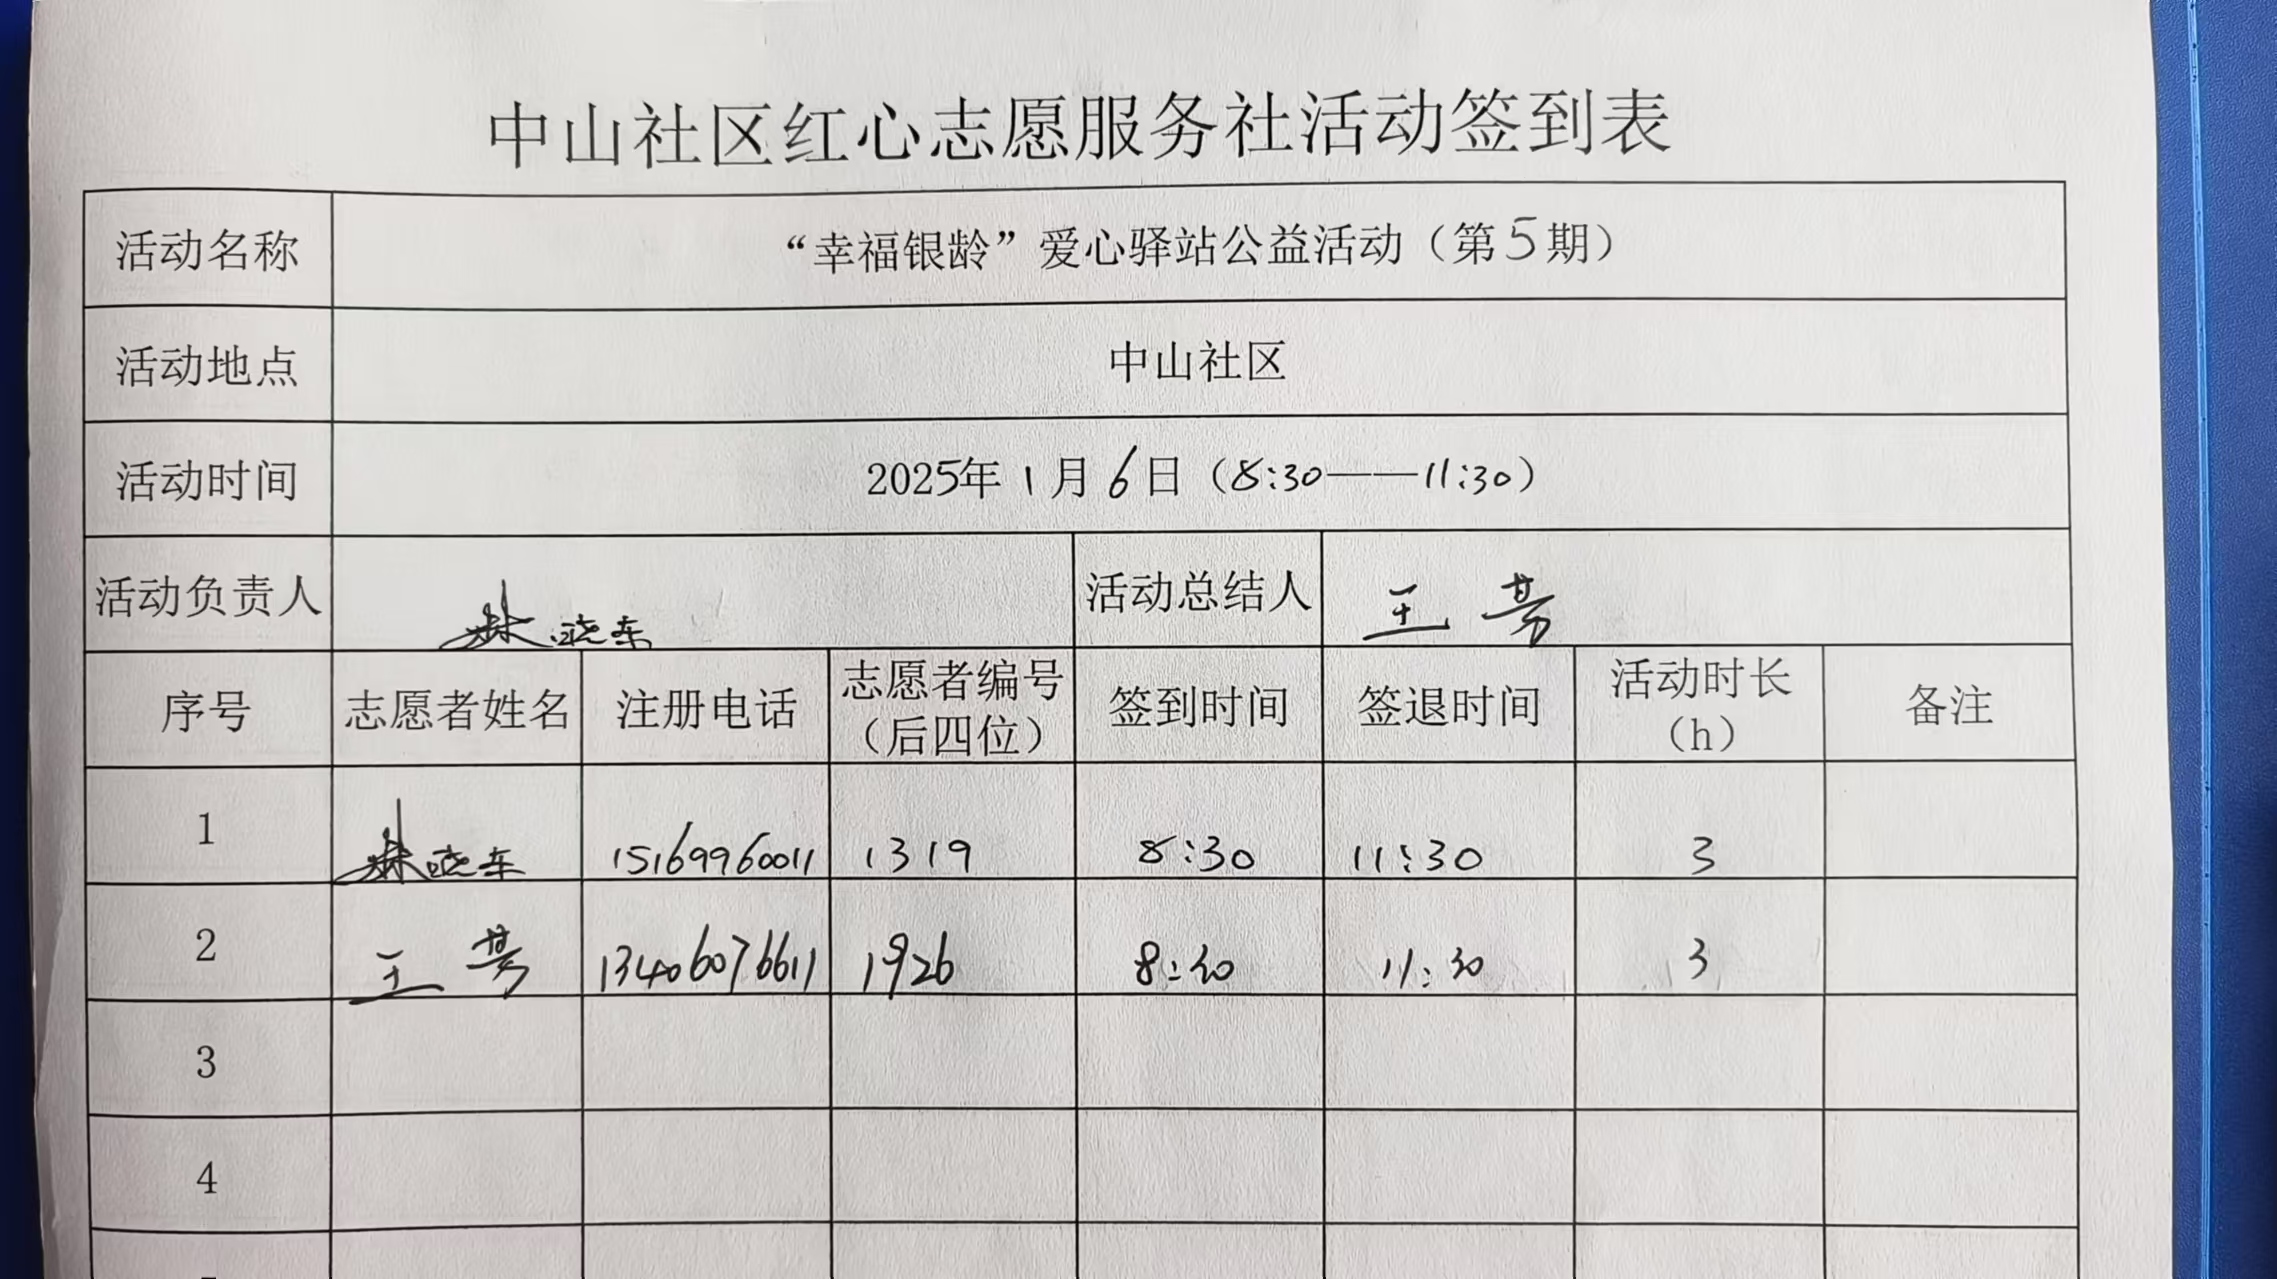 中山社区红心志愿服务社活动签到表
活动名称 “幸福银龄”爱心驿站公益活动（第5期）
活动地点 中山社区
活动时间 2025年1月6日（8:30——11:30）
活动负责人 林晓东 活动总结人 王芳
序号 志愿者姓名 注册电话 志愿者编号（后四位） 签到时间 签退时间 活动时长（h） 备注
1 林晓东 15169960011 1319 8:30 11:30 3
2 王芳 13406076611 1926 8:30 11:30 3
3
4